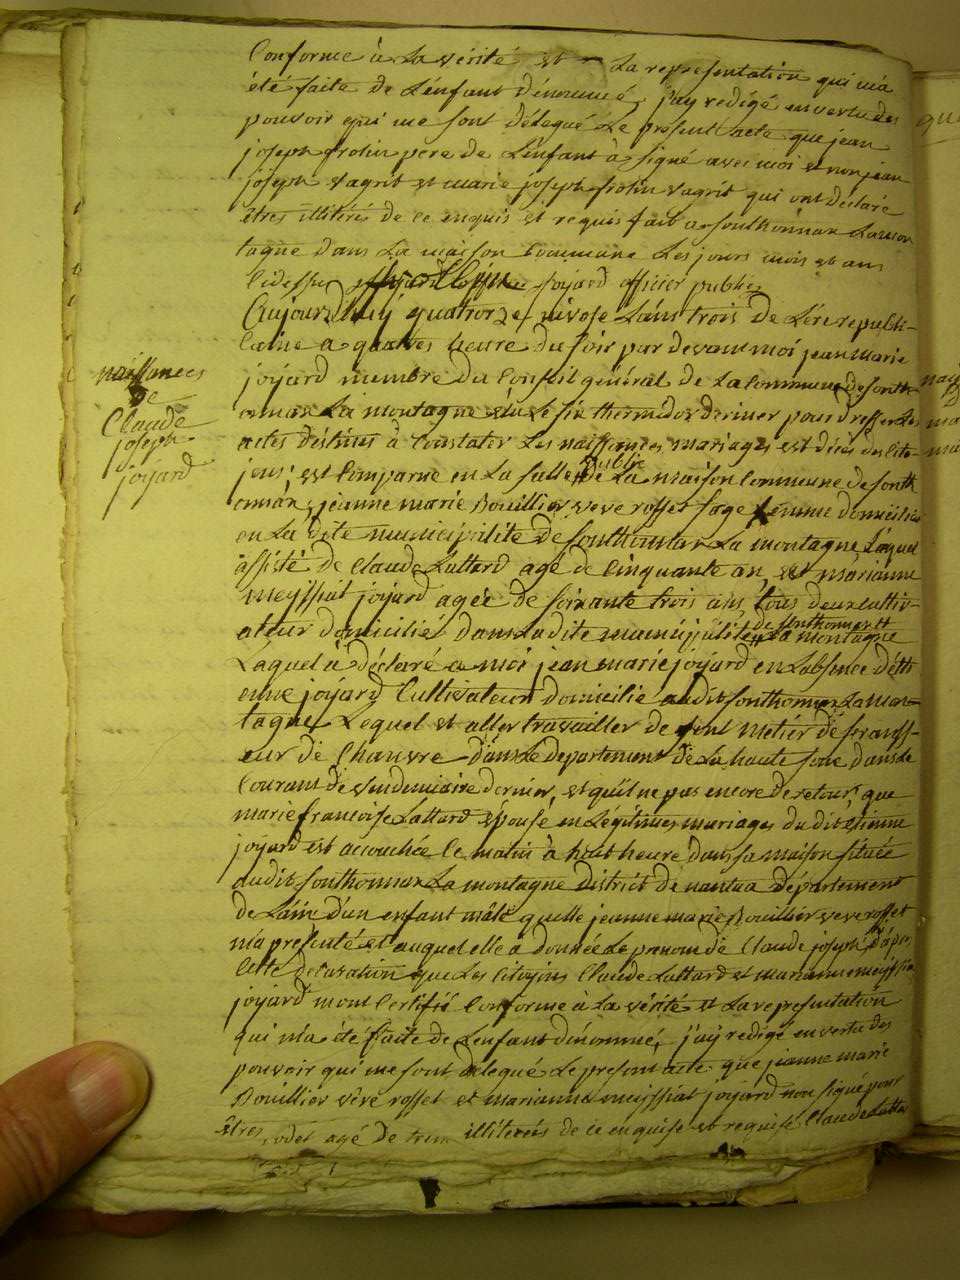 Conforme à La vérité et La representation qui m'a
été faite de L'enfant dénommé, j'ay redigé en vertu des
pouvoir qui me sont délegué Le present acte que jean
joseph frolin pere de L'enfant à signé avec moi et non jean
joseph vagrit et marie joseph frolin vagrit qui ont déclaré
êtres illitérés de ce enquis et requis fait a sonthonnax Lamon
tagne dans La maison Commune Les jours mois et ans
Cidessus joyard officier public
Aujourd'huÿ quatorze nivose L'ans trois de L'ère republi-
Caine a quatres heure du soir par devant moi jean Marie
joÿard membre du Conseil général de La Commune de sonth-
onnax La montagne élu Le six thermidor dernier pour dresser Les
actes déstinés à Constater Les naissances, mariages est décés des Cito-
jens; est Comparue en La salle public de La maison Commune de sonth
onnax, jeanne marie Bouillier veve rosset sage femme domiciliée
en La dite municipalité de sonthonnax La montagne, Laquel
assisté de Claude Lattard agé de Cinquante an, est marianne
meyssiat joÿard agée de soixante trois ans tous deux cultiv-
ateur domicilié dans Ladite municipalité de sonthonnax La montagne
Laquel à déclaré a moi jean marie joÿard en L'absence d'éti
enne joÿard Cultivateur domicilie audit sonthonnax La mon-
tagne Lequel et aller travailler de son métier de
eur de Chanvre dans Le departement de La haute sone dans Le
Courant de vendemiaire dernier, et qu'il ne pas encore de retour, que
marie francoise Lattard épouse en Légitimes mariages du dit étienne
joÿard est accouchée Ce matin à huit heure dans sa maison située
audit sonthonnax La montagne district de nantua département
de L'ain d'un enfant mâle quelle jeanne marie Bouillier veve rosset
m'a presenté et auquel elle à donnée Le prenom de Claude joseph, d'apres
Cette declaration que Les Citoÿens Claude Lattard et marianne meyssia
joÿard m'ont Certifié Conforme à La vérité et La representation
qui m'a été faite de L'enfant dénommé, j'aÿ redigé en vertu des
pouvoir qui me sont délegué Le present acte que jeanne marie
Bouillier veve rosset et marianne meissiat joÿard non signé pour
êtres illiterées de ce enquise et requise, Claude Latta
naissances
de
Claude
joseph
joyard